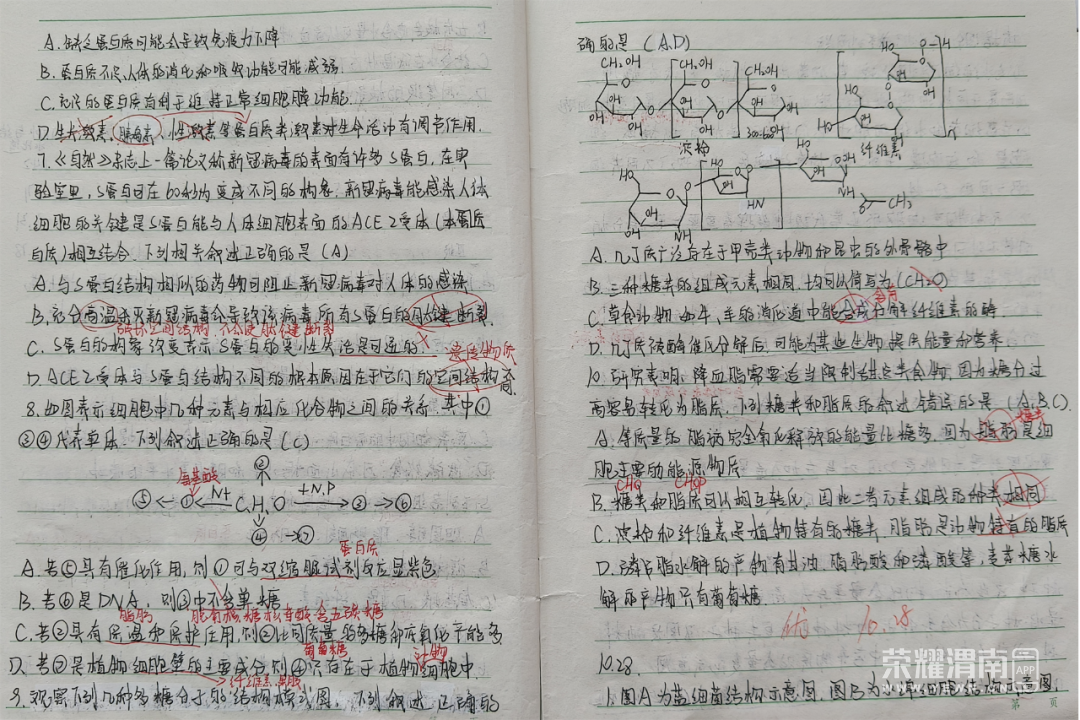 A.缺乏蛋白质可能会导致免疫力下降
B.蛋白质不足,人体的消化和吸收功能可能减弱.
C.充足的蛋白质有利于维持正常细胞膜功能.
D.生长激素、胰岛素、性激素等蛋白质类激素对生命活动有调节作用.
7.《自然》杂志上一篇论文称新冠病毒的表面有许多S蛋白,在实
验室里,S蛋白可在60秒内变成不同的构象.新冠病毒能感染人体
细胞的关键是S蛋白能与人体细胞表面的ACE2受体(本质
白质)相互结合.下列相关叙述正确的是(A)
A.与S蛋白结构相似的药物可阻止新冠病毒对人体的感染
B.充分高温杀灭新冠病毒会导致该病毒所有S蛋白的肽键断裂
破坏空间结构 不会使肽键断裂
C.S蛋白的构象改变表示S蛋白的变性失活是可逆的
遗传物质
D.ACE2受体与S蛋白结构不同的根本原因在于它们的空间结构不同.
8.如图表示细胞中几种元素与相应化合物之间的关系.其中①
③④代表单体.下列叙述正确的是(C)
②
氨基酸
⑤←①←N+ C,H,O +N,P→③→⑥
④→⑦
蛋白质
A.若⑤具有催化作用,则①可与双缩脲试剂反应显紫色
B.若⑥是DNA,则③中不含单糖
脂肪 脱氧核糖核苷酸含五碳糖
C.若②具有保温和保护作用,则②比同质量的多糖彻底氧化产能多
葡萄糖 动物
D.若⑦是植物细胞壁的主要成分,则④只存在于植物细胞中
纤维素果胶
9.观察下列几种多糖分子的结构模式图,下列叙述正确的
确的是(A.D)
CH₂OH CH₂OH CH₂OH
300-600
淀粉 纤维素
HN
NH
NH
CH₃
A.几丁质广泛存在于甲壳类动物和昆虫的外骨骼中
B.三种糖类的组成元素相同,均可以简写为(CH₂O)
C.草食动物如牛、羊的消化道中能合成分解纤维素的酶
D.几丁质被酶催化分解后,可能为某些生物提供能量和营养
10.研究表明,降血脂需要适当限制甜点类食物,因为糖分过
高容易转化为脂质.下列糖类和脂质的叙述错误的是(A.B.C).
糖类
A.等质量的脂肪完全氧化释放的能量比糖多,因为脂肪是细
胞主要的能源物质
CHO CHOP
B.糖类和脂质可以相互转化,因此二者元素组成的种类相同
C.淀粉和纤维素是植物特有的糖类,脂肪是动物特有的脂质
D.磷脂水解的产物有甘油、脂肪酸和磷酸等,麦芽糖水
解的产物只有葡萄糖.
优 10.28
10.28
1.图A为蓝细菌结构示意图,图B为
荣耀渭南 APP
第 页